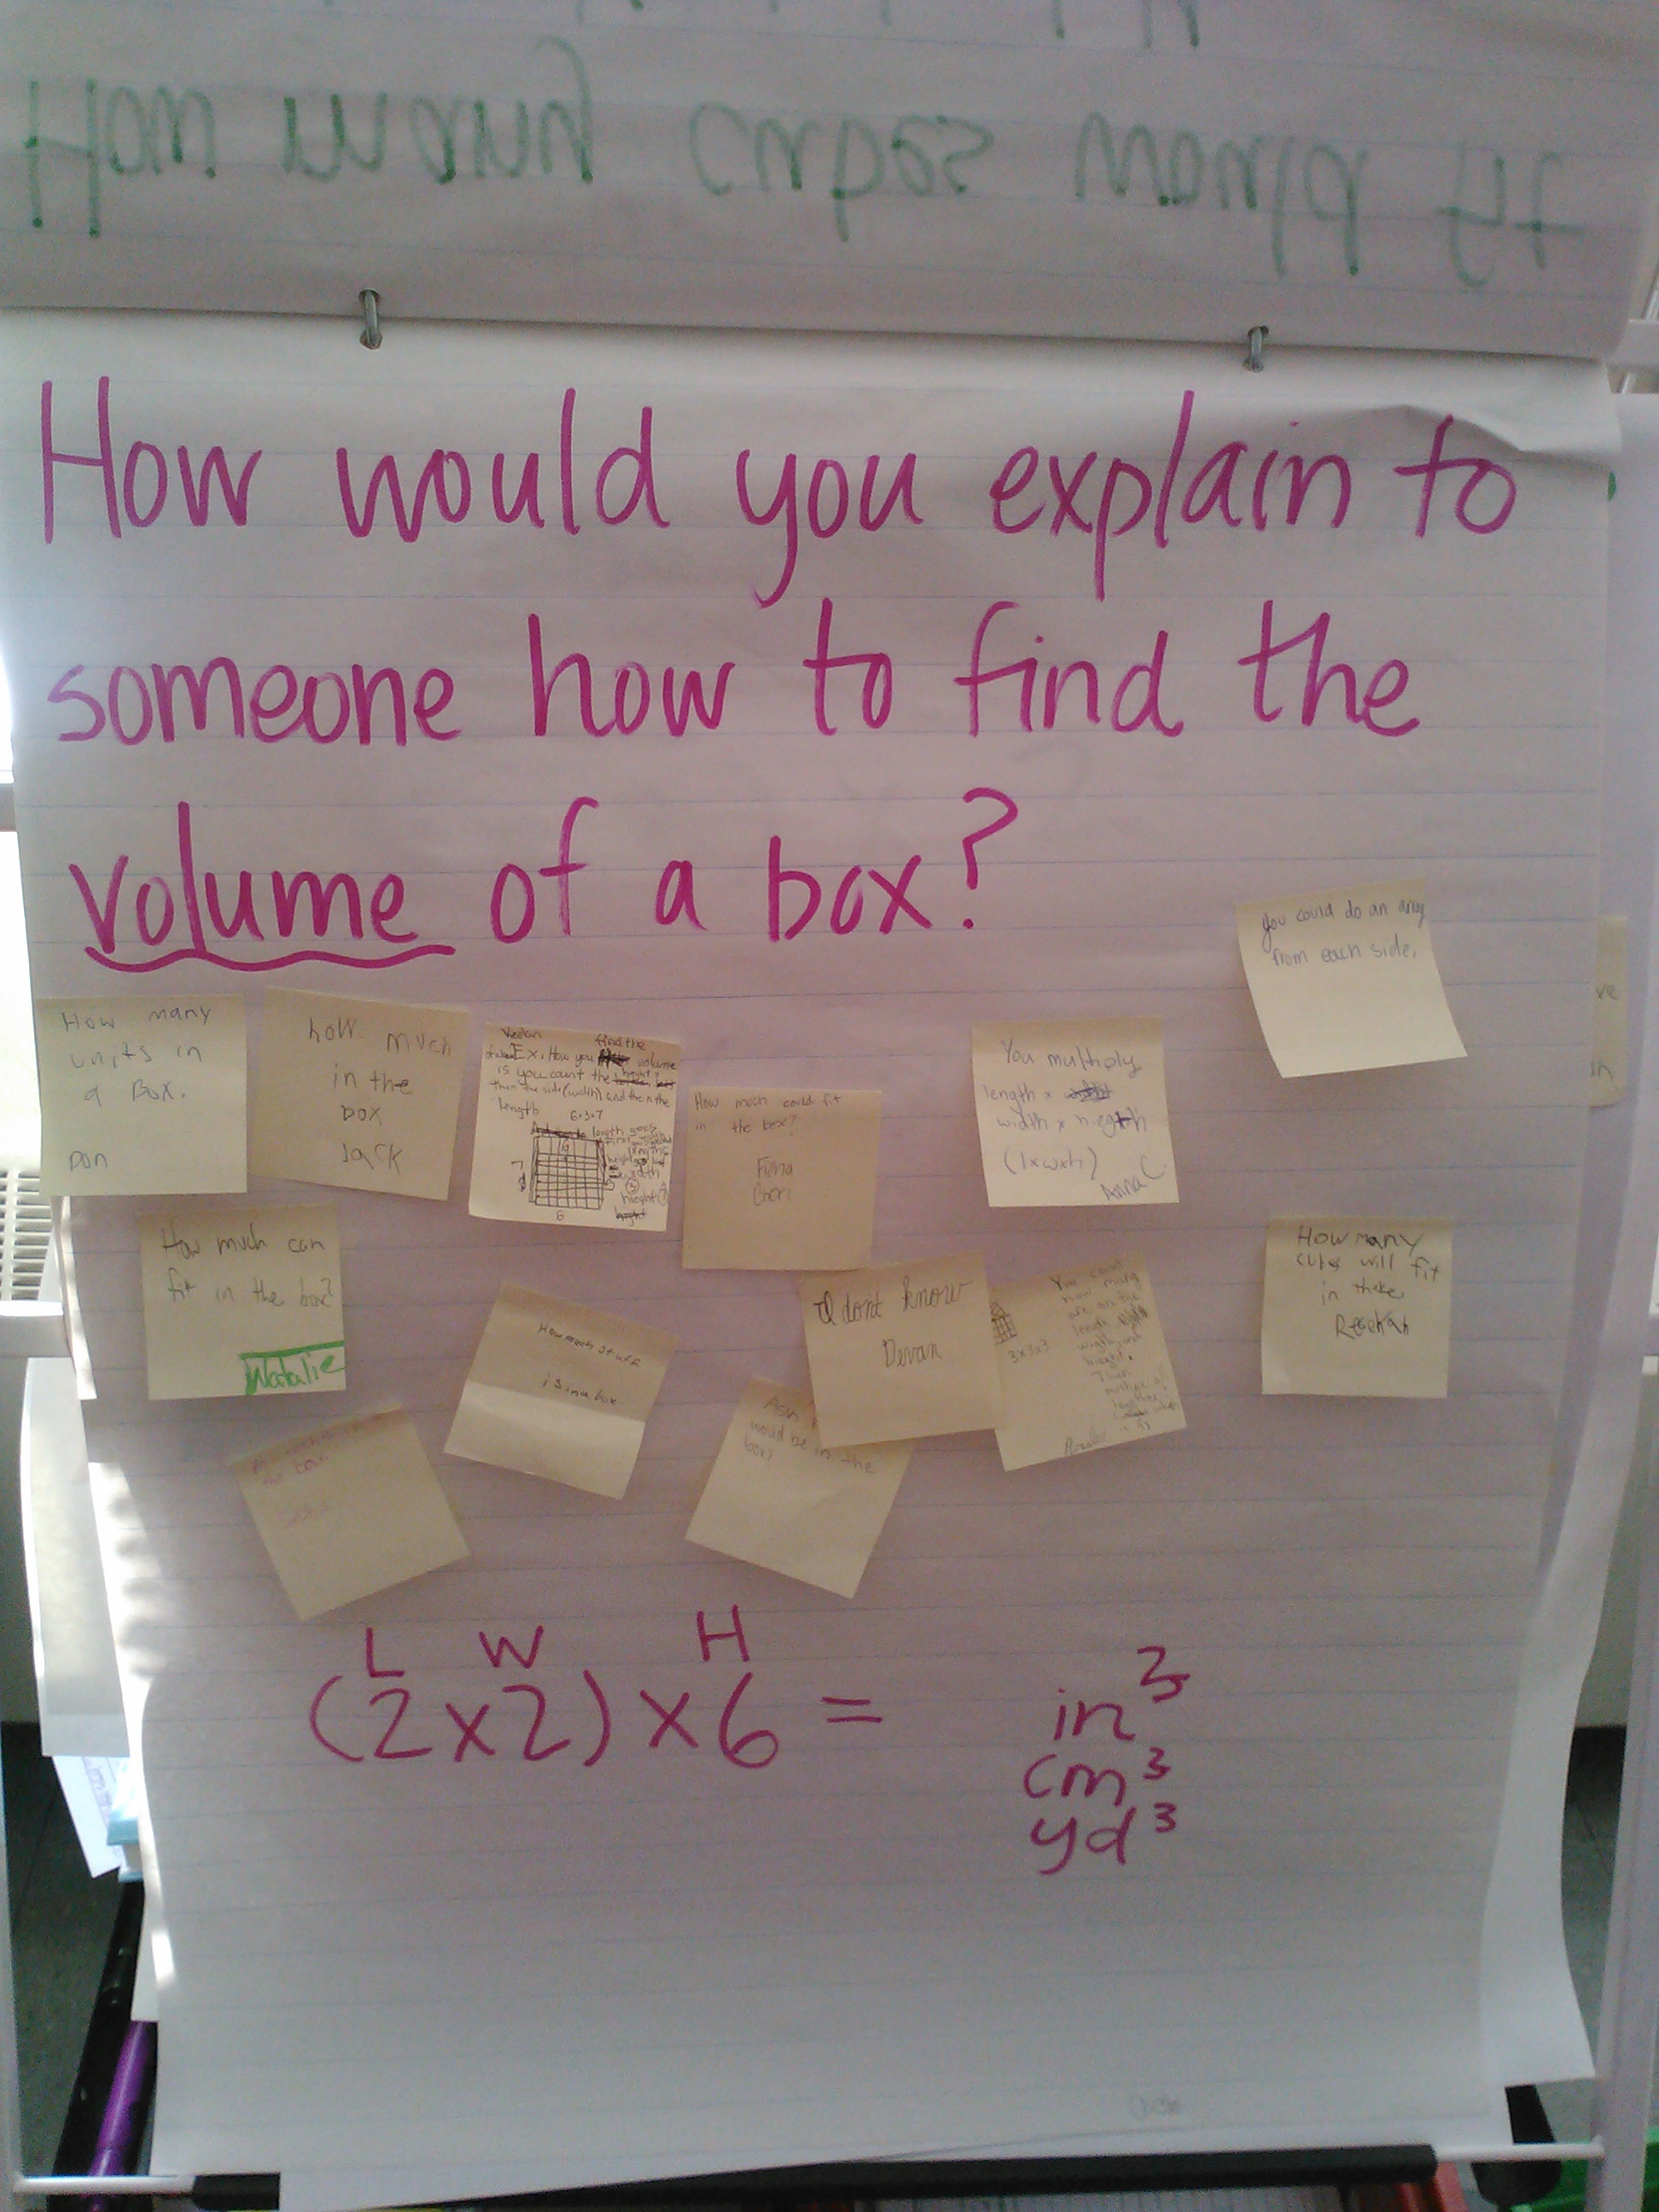 How many cubes would fit
How would you explain to
someone how to find the
volume of a box?
you could do an array
from each side.
How many
units in
a Box.
Don
how much
in the
Box
Jack
find the
Ex. How you volume
is you count the height?
then the side (width) and then the
length
6×3×7
length goes
first
6
How much could fit
in the box?
Fiona
You multiply
length x
width x hiegth
(lxwxh)
Anna C
How much can
fit in the box?
Natalie
How much stuff
is in a box
I don't know
Devan
You count
how many
are on the
length
width and
height.
3x3x3
would be in the
box?
How many
cubes will fit
in there
L W H
(2x2)x6= in³
cm³
yd³